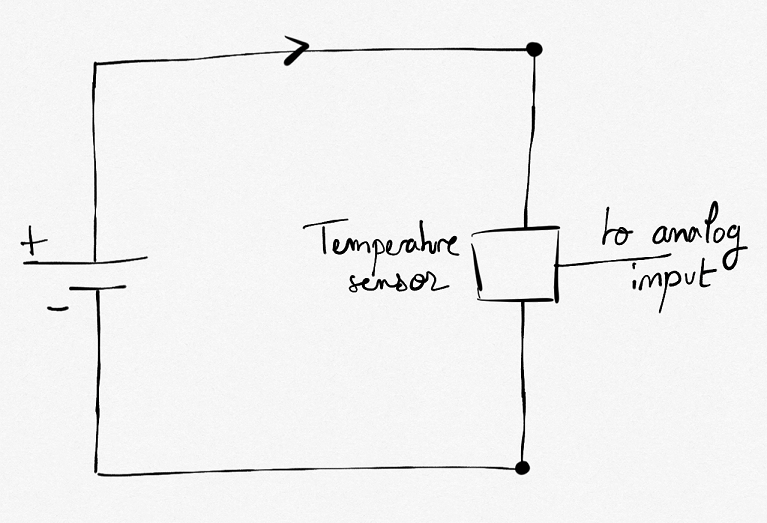 +
-
Temperature
sensor
to analog
input